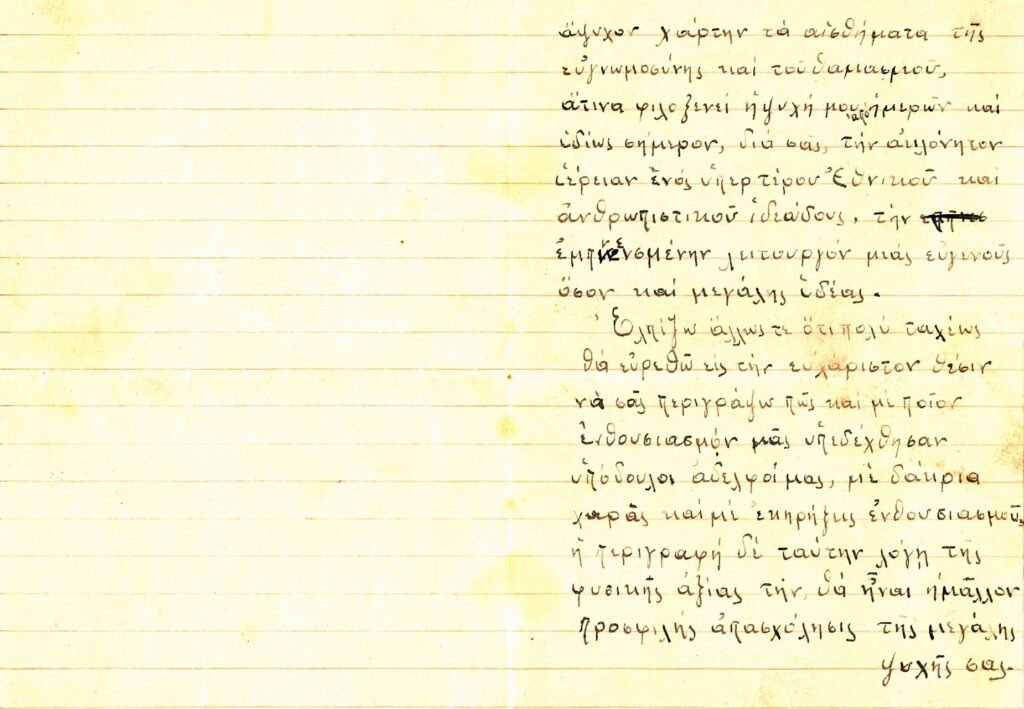 ἄψυχον χάρτην τά αἰσθήματα τῆς
εὐγνωμοσύνης καί τοῦ θαμασμοῦ,
ἅτινα φιλοξενεῖ ἡ ψυχή μου ἀπό ἡμερῶν καί
ἰδίως σήμερον, διά σᾶς, τήν ἀκλόνητον
ἱέρειαν ἑνός ὑπερτέρου Ἐθνικοῦ καί
ἀνθρωπιστικοῦ ἰδεώδους, τήν
ἐμπνευσμένην λειτουργόν μιάς εὐγενοῦς
ὅσον καί μεγάλης ἰδέας.
Ἐλπίζω ἄλλωστε ὅτι πολύ ταχέως
θά εὑρεθῶ εἰς τήν εὐχάριστον θέσιν
νά σᾶς περιγράψω πῶς καί μέ ποῖον
ἐνθουσιασμόν μᾶς ὑπεδέχθησαν
ὑπόδουλοι ἀδελφοί μας, μέ δάκρια
χαρᾶς καί μέ ἐκρήξις ἐνθουσιασμοῦ,
ἡ περιγραφή δέ ταύτην λόγῃ τῆς
φυσικῆς ἀξίας τήν, θά ἦναι ἡ μᾶλλον
προσφιλής ἀπασχόλησις τῆς μεγάλης
ψυχῆς σας.